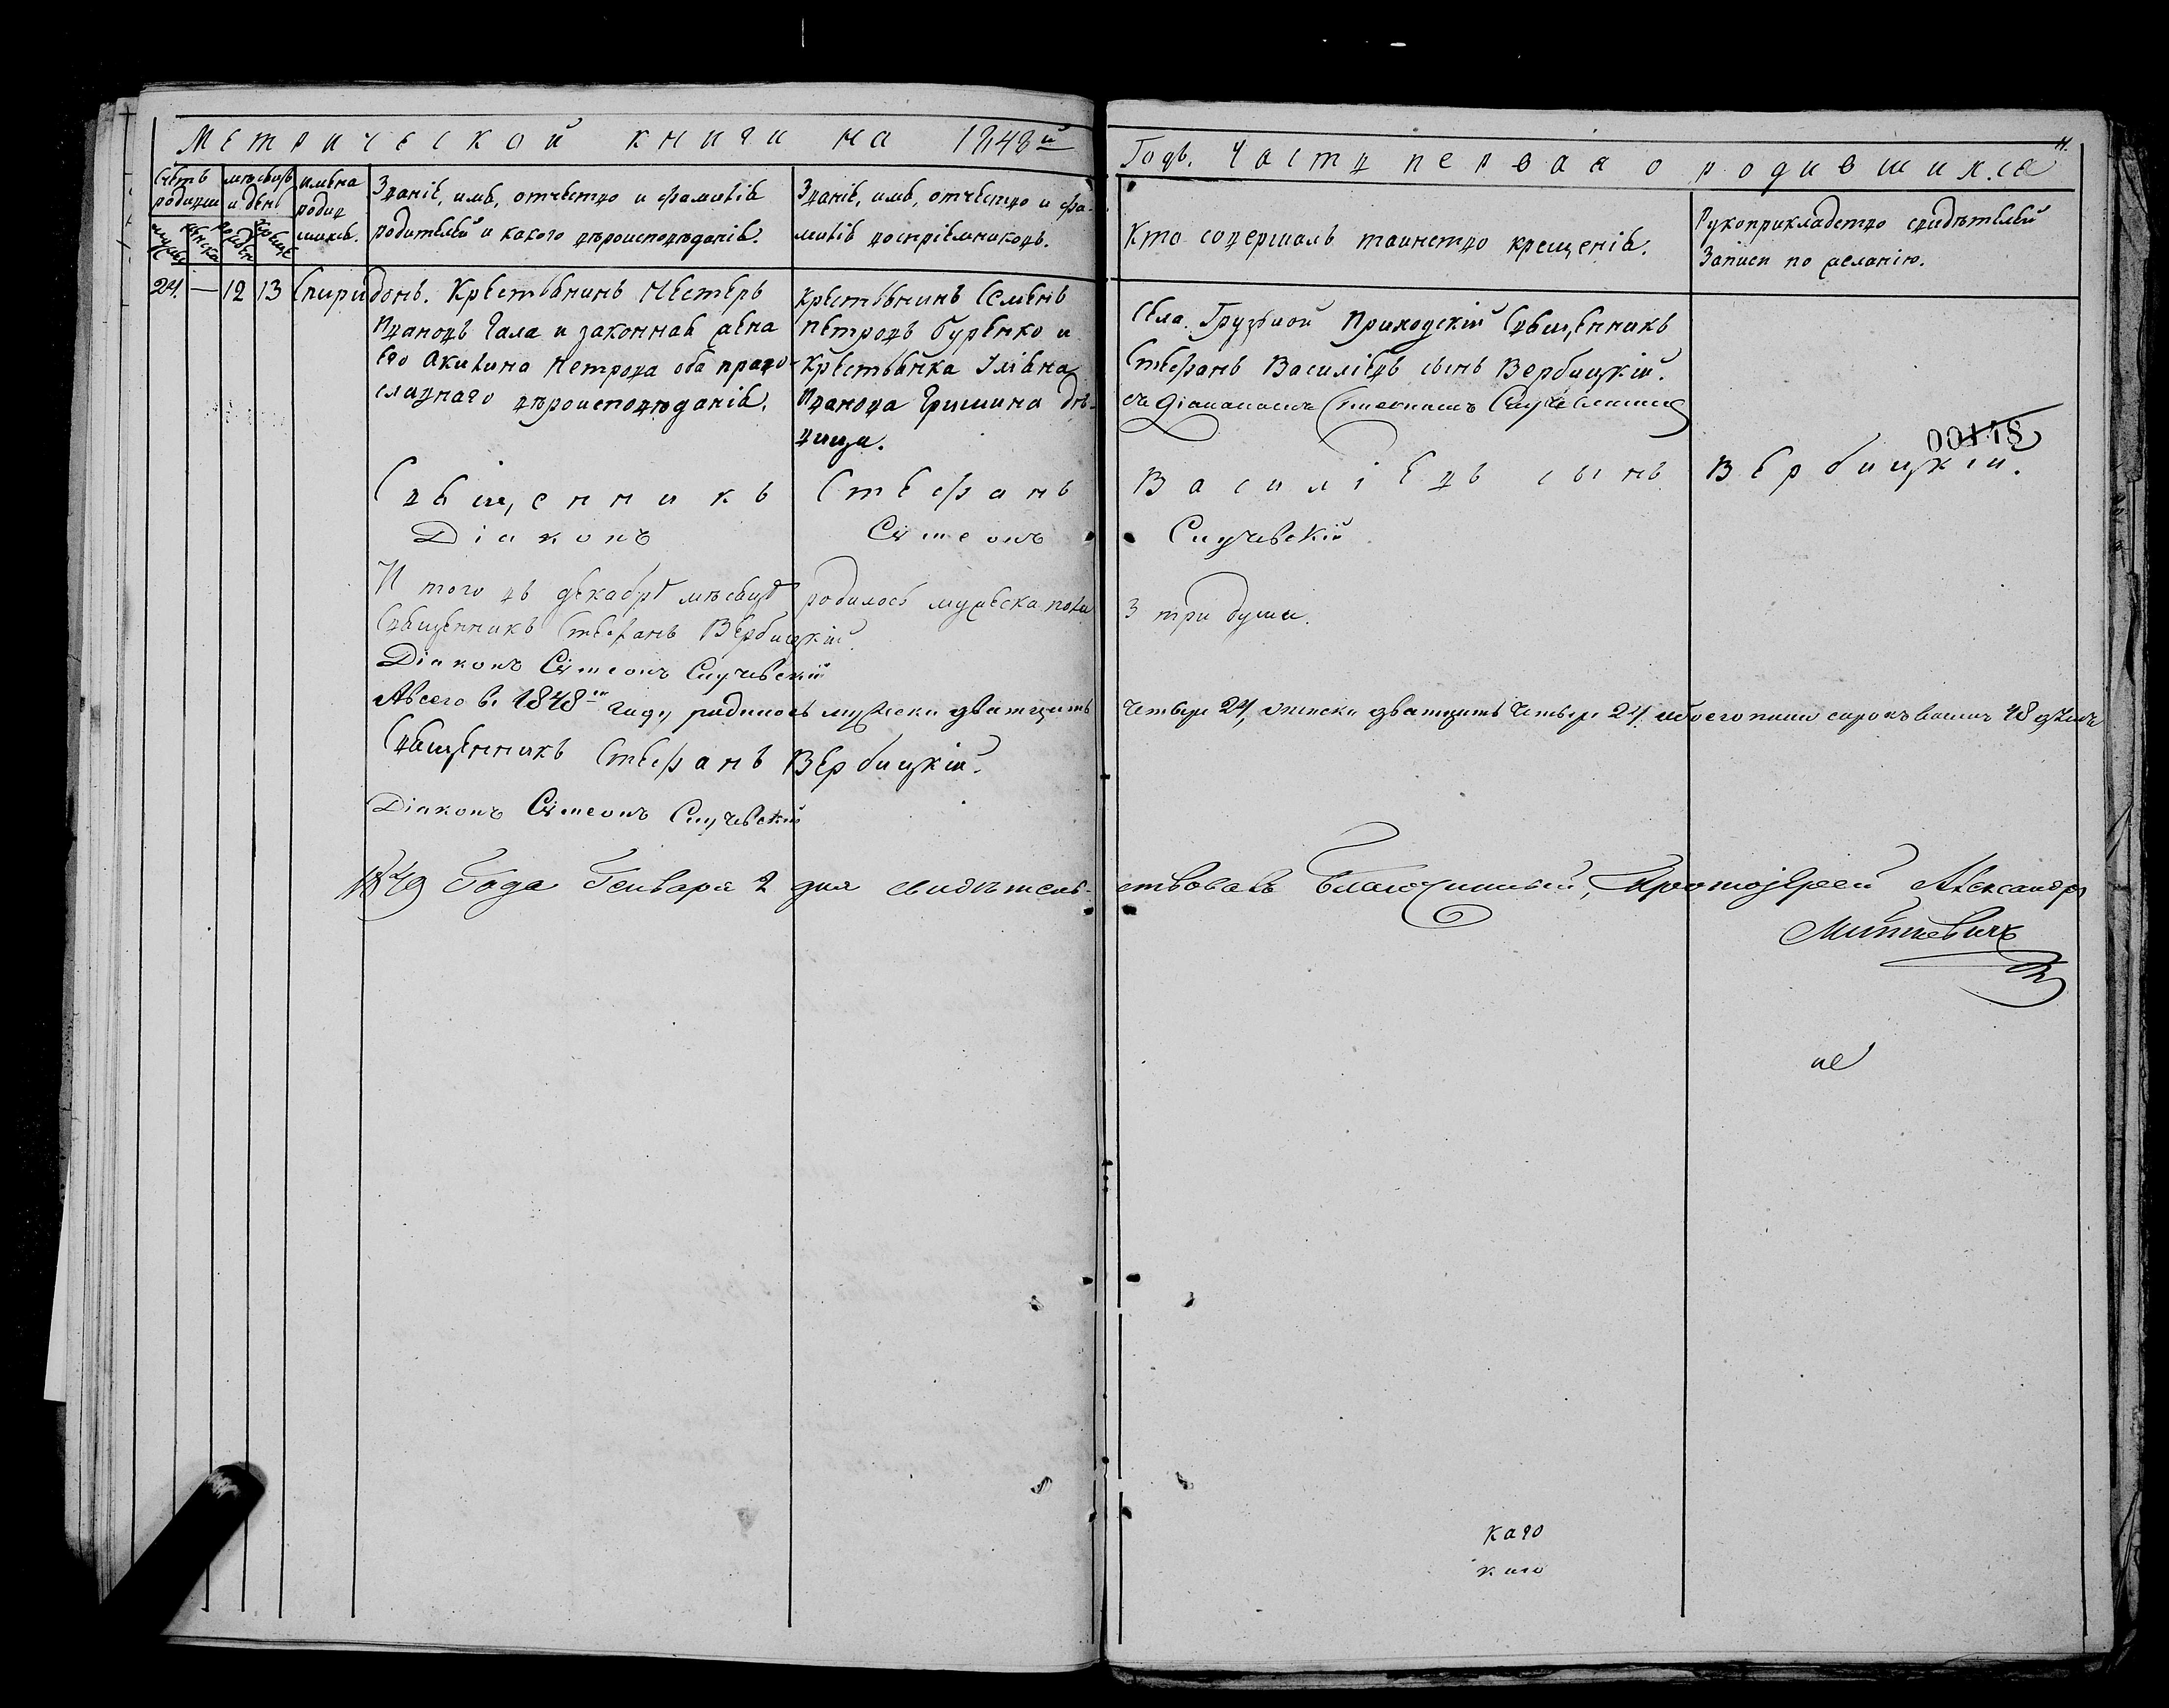 Метрической книги на 1848й
Годъ. Часть первая о родившихся
Счетъ родивш
мѣсяцъ и день
имена родив шихся.
Званіе, имя, отчество и фамилія
родителей и какого вѣроисповѣданія.
Званіе, имя, отчество и фа-
милія воспріемниковъ.
Кто совершалъ таинство крещенія.
Рукоприкладство свидѣтелей
Записи по желанію.
24. — 12 13 Спиридонъ.
Крестьянинъ Нестеръ
Ивановъ Гала и законная жена
его Акилина Петрова оба право-
славнаго вѣроисповѣданія.
Крестьянинъ Семенъ
Петровъ Буренко и
Крестьянка Уліана
Иванова Гришина дѣ-
вица.
Села Грузкой Приходскій Священникъ
Стефанъ Василіевъ сынъ Вербицкій.
съ Діакономъ Симеономъ
00178
Священникъ Стефанъ Василіевъ сынъ Вербицкій.
Діаконъ Сѵмеонъ Случевскій
Итого въ декабрѣ мѣсяцѣ родилось мужеска пола 3 три души.
Священникъ Стефанъ Вербицкій.
Діаконъ Сѵмеонъ Случевскій
А всего въ 1848м году родилось мужеска дватцать четыре 24, женска дватцать четыре 24. обоего пола сорокъ восемь 48 душъ
Священникъ Стефанъ Вербицкій.
Діаконъ Сѵмеонъ Случевскій
1849 Года Генваря 2 дня свидѣтель-
ствовалъ Благочинный, Протоіерей Александръ
не
каго
каго